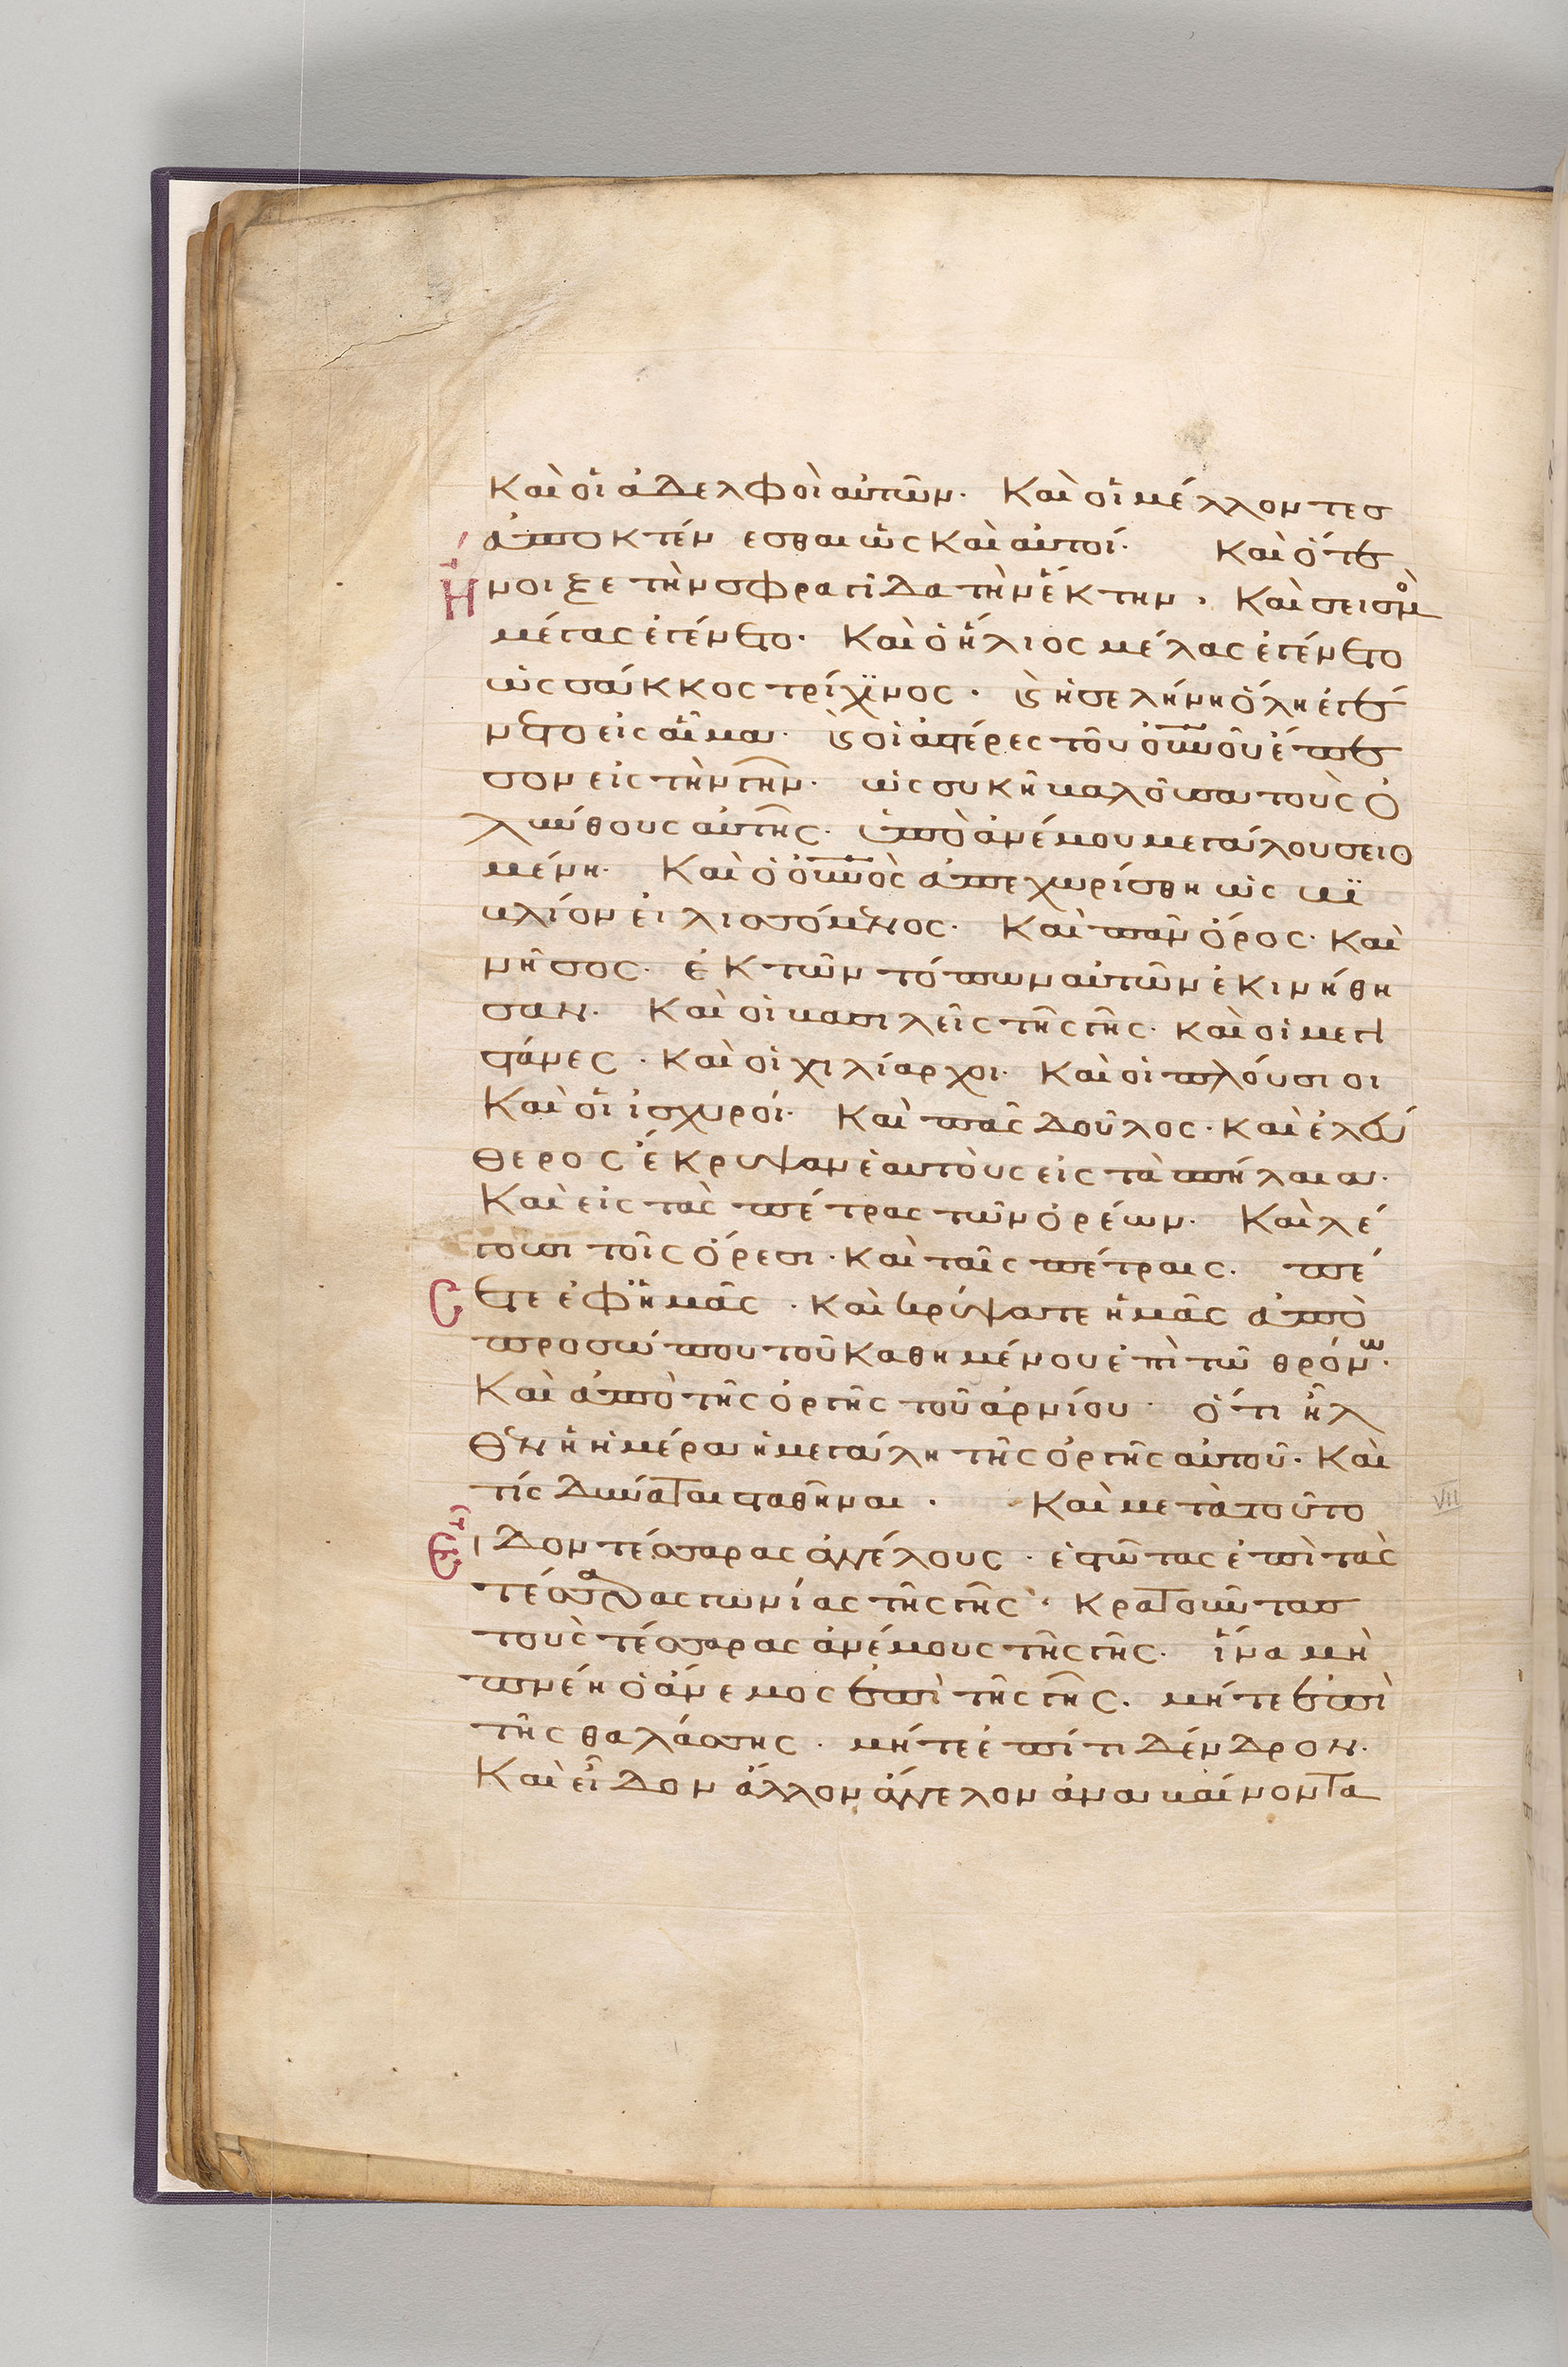 Καὶ οἱ ἀδελφοὶ αὐτῶν· Καὶ οἱ μέλλοντεσ
ἀποκτέν εσθαι ὡς Καὶ αὐτοί· Καὶ ὅτε
ἤνοιξε τὴν σφραγῖδα τὴν ἕκτην· Καὶ σεισμὸ
μέγας ἐγένετο· Καὶ ὁ ἥλιος μέλας ἐγένετο
ὡς σάκκος τρίχϊνος· ϗ ἡ σελήνη ὅλη ἐγέ
νετο εἰς αἷμα· ϗ οἱ ἀστέρες τοῦ οὐνοῦ ἔπε
σον εἰς τὴν γῆν· ὡς συκῆ βαλοῦσα τοὺς ὀ
λύνθους αὐτῆς· ὑπὸ ἀνέμου μεγάλου σειο
μένη· Καὶ ὁ οὐνὸς ἀπεχωρίσθη ὡς βϊ
βλίον εἱλισσόμενος· Καὶ πᾶν ὄρος· Καὶ
νῆσος· ἐκ τῶν τόπων αὐτῶν ἐκινήθη
σαν· Καὶ οἱ βασιλεῖς τῆς γῆς· Καὶ οἱ μεγι
στάνες· Καὶ οἱ χιλίαρχοι· Καὶ οἱ πλούσιοι
Καὶ οἱ ἰσχυροί· Καὶ πᾶς δοῦλος· Καὶ ἐλεύ
θερος ἔκρυψαν ἑαυτοὺς εἰς τὰ σπήλαια·
Καὶ εἰς τὰς πέτρας τῶν ὀρέων· Καὶ λέ
γουσι τοῖς ὄρεσι· Καὶ ταῖς πέτραις· πέ
σετε ἐφ ἡμᾶς· Καὶ κρύψατε ἡμᾶς ἀπὸ
προσώπου τοῦ Καθημένου ἐπὶ τῶ θρόνω·
Καὶ ἀπὸ τῆς ὀργῆς τοῦ ἀρνίου· ὅτι ἦλ
θεν ἡ ἡμέρα ἡ μεγάλη τῆς ὀργῆς αὐτοῦ· Καὶ
τίς δύναται σταθῆναι· Καὶ μετὰ τοῦτο
εἶδον τέσσαρας ἀγγέλους· ἑστῶτας ἐπὶ τὰς
τέσσαρας γωνίας τῆς γῆς· κρατοῦντασ
τοὺς τέσσαρας ἀνέμους τῆς γῆς· ἵνα μὴ
πνέη ὁ ἄνεμος ἐπὶ τῆς γῆς· μήτε ἐπὶ
τῆς θαλάσσης· μήτε ἐπί τι δένδρον·
Καὶ εἶδον ἄλλον ἄγγελον ἀναβαίνοντα
VII